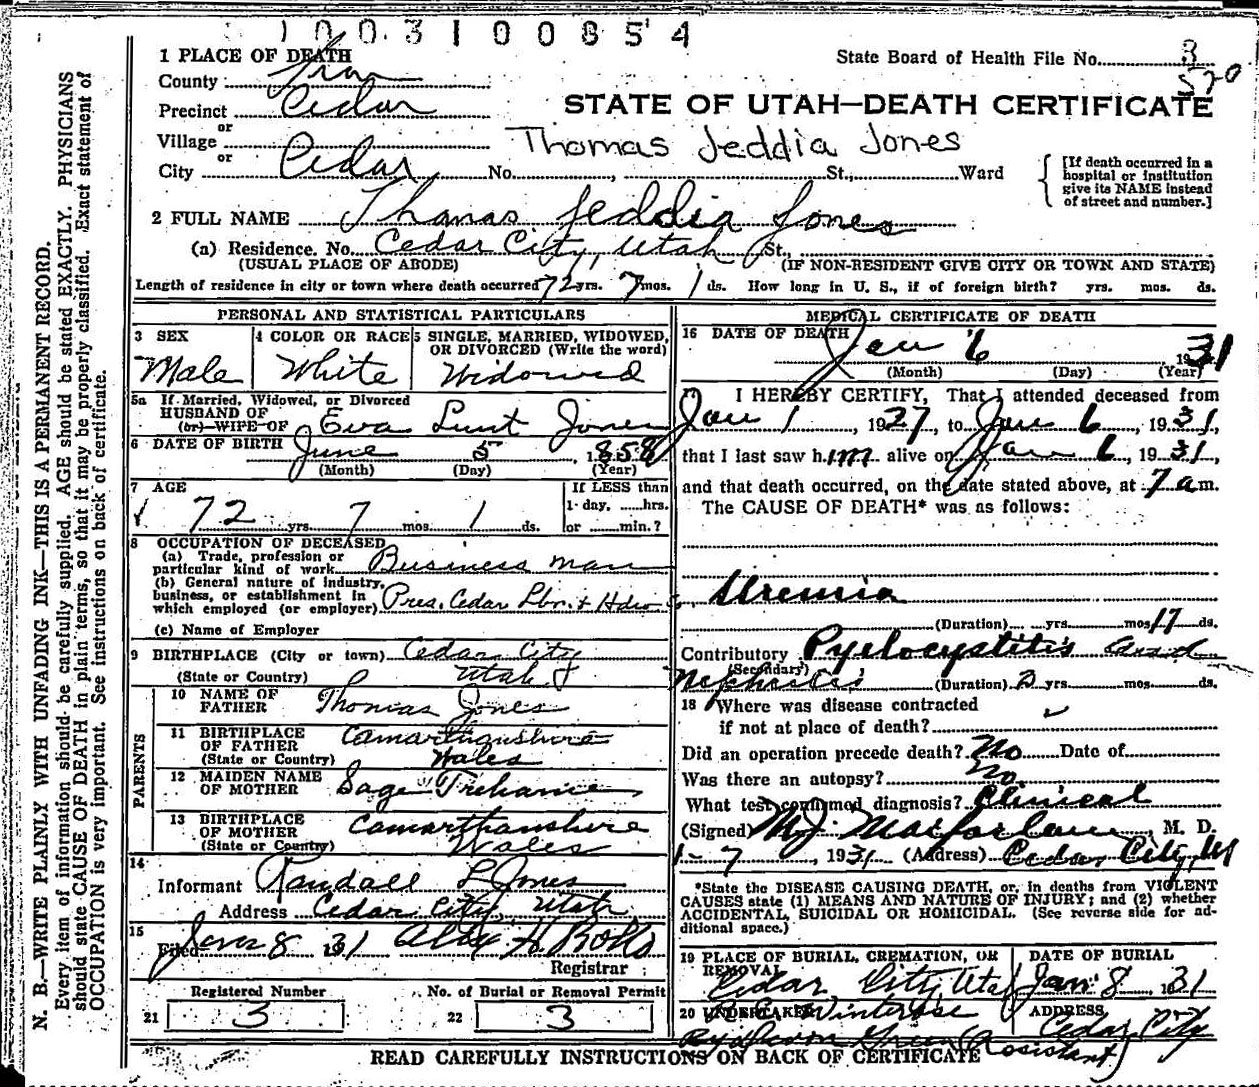 1003100854
1 PLACE OF DEATH
State Board of Health File No. 3
570
County Iron
Precinct Cedar
STATE OF UTAH—DEATH CERTIFICATE
or
Village
Thomas Jeddia Jones
or
City Cedar, No. , St., Ward
[If death occurred in a hospital or institution give its NAME instead of street and number.]
2 FULL NAME Thomas Jeddia Jones
(a) Residence. No. Cedar City, Utah St.,
(USUAL PLACE OF ABODE) (IF NON-RESIDENT GIVE CITY OR TOWN AND STATE)
Length of residence in city or town where death occurred 72 yrs. 7 mos. 1 ds. How long in U. S., if of foreign birth? yrs. mos. ds.
PERSONAL AND STATISTICAL PARTICULARS
3 SEX
Male
4 COLOR OR RACE
White
5 SINGLE, MARRIED, WIDOWED, OR DIVORCED (Write the word)
Widowed
5a If Married, Widowed, or Divorced
HUSBAND OF
(or) WIFE OF Eva Lunt Jones
6 DATE OF BIRTH June 5, 1858
(Month) (Day) (Year)
7 AGE
72 yrs. 7 mos. 1 ds.
If LESS than
1 day, hrs.
or min.?
8 OCCUPATION OF DECEASED
(a) Trade, profession or
particular kind of work Business man
(b) General nature of industry,
business, or establishment in
which employed (or employer) Pres. Cedar Lbr. & Hdw
(c) Name of Employer
9 BIRTHPLACE (City or town) Cedar City
(State or Country) Utah
PARENTS
10 NAME OF FATHER Thomas Jones
11 BIRTHPLACE OF FATHER
(State or Country) Wales
12 MAIDEN NAME OF MOTHER Sage Treharne
13 BIRTHPLACE OF MOTHER Camarthanshire
(State or Country) Wales
14
Informant Randall L Jones
Address Cedar City, Utah
15
Filed Jan 8 1931
Registrar
Registered Number
21 3
No. of Burial or Removal Permit
22 3
MEDICAL CERTIFICATE OF DEATH
16 DATE OF DEATH Jan 6 1931
(Month) (Day) (Year)
17 I HEREBY CERTIFY, That I attended deceased from
Jan 1, 1927, to Jan 6, 1931,
that I last saw him alive on Jan 6, 1931,
and that death occurred, on the date stated above, at 7 am.
The CAUSE OF DEATH* was as follows:
Uremia
(Duration) yrs. mos. 17 ds.
Contributory Pyelocystitis and
(Secondary)
Nephritis (Duration) 2 yrs. mos. ds.
18 Where was disease contracted
if not at place of death?
Did an operation precede death? No Date of
Was there an autopsy? No.
What test confirmed diagnosis? Clinical
(Signed) M.J. Macfarlane, M. D.
1-7, 1931 (Address) Cedar City, Ut
*State the DISEASE CAUSING DEATH, or, in deaths from VIOLENT
CAUSES state (1) MEANS AND NATURE OF INJURY; and (2) whether
ACCIDENTAL, SUICIDAL OR HOMICIDAL. (See reverse side for ad-
ditional space.)
19 PLACE OF BURIAL, CREMATION, OR REMOVAL
Cedar City, Utah
DATE OF BURIAL
Jan 8, 1931
20 UNDERTAKER Winterose
(Assistant)
ADDRESS
Cedar City
READ CAREFULLY INSTRUCTIONS ON BACK OF CERTIFICATE
N. B.—WRITE PLAINLY WITH UNFADING INK—THIS IS A PERMANENT RECORD.
Every item of information should be carefully supplied. AGE should be stated EXACTLY. PHYSICIANS
should state CAUSE OF DEATH in plain terms, so that it may be properly classified. Exact statement of
OCCUPATION is very important. See instructions on back of certificate.